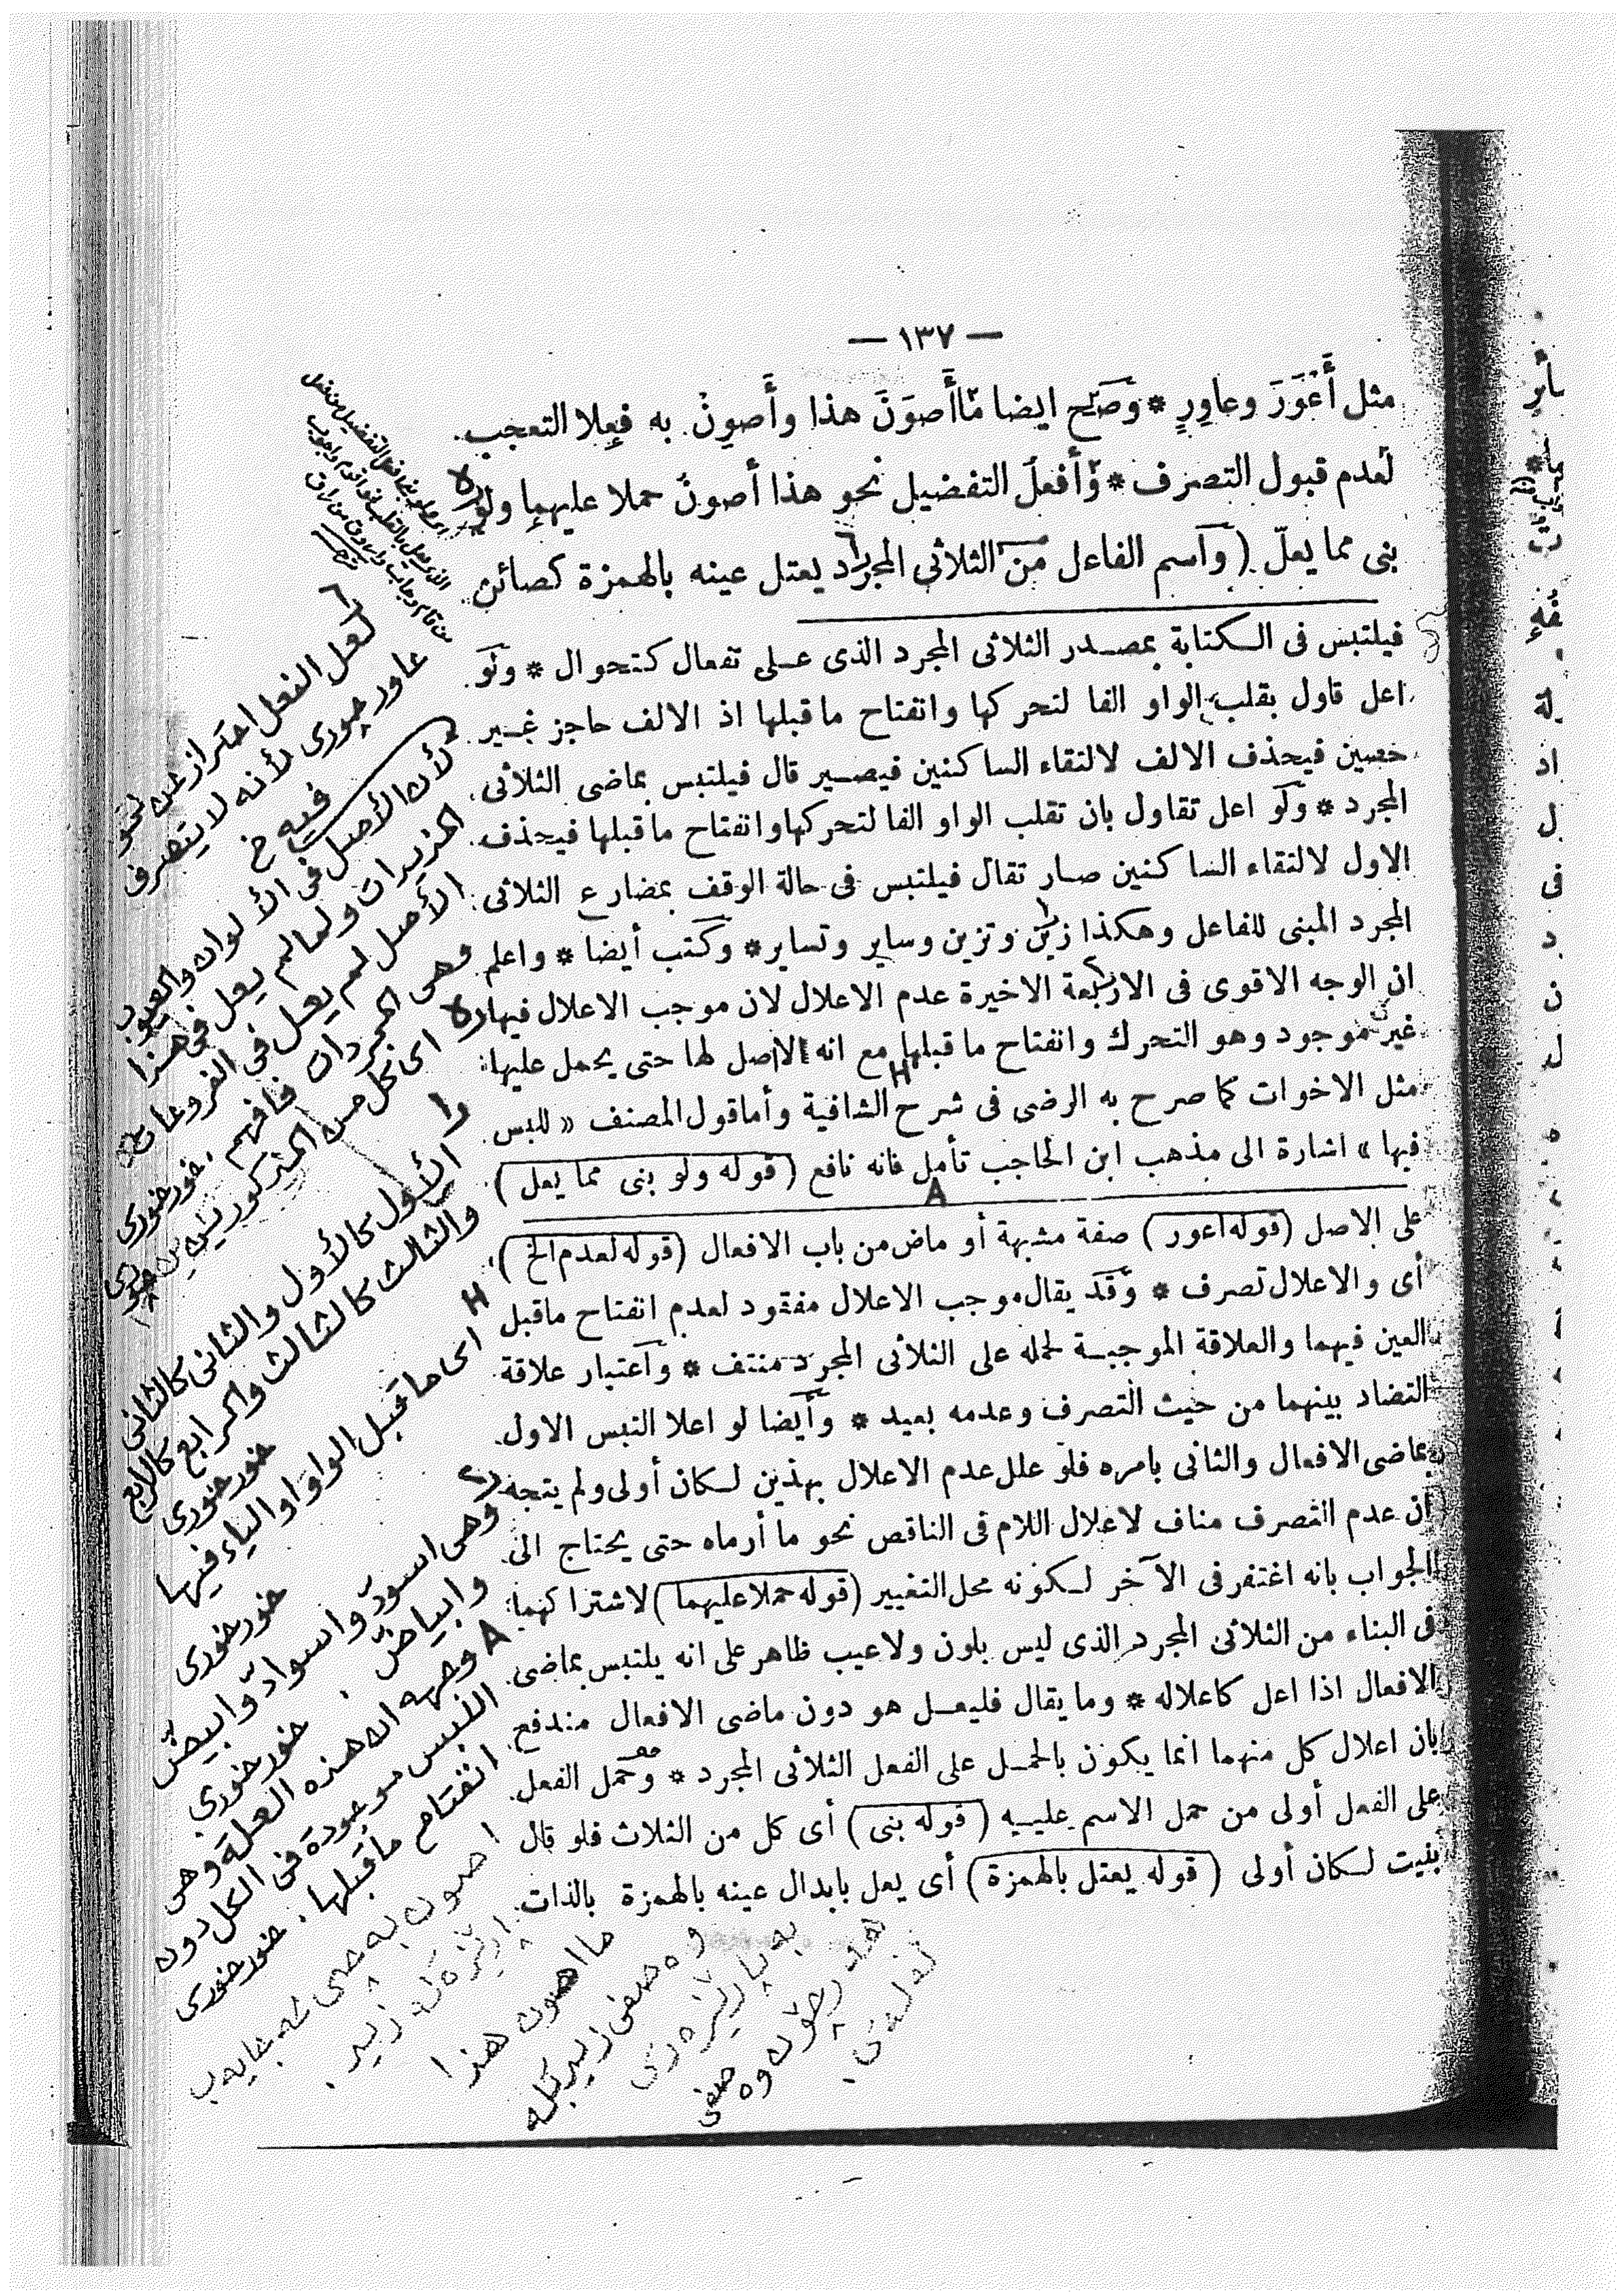 — ١٣٧ —
مثل أَعْوَرَ وعاوِرٍ * وَصَحّ ايضا مَاأَصوَنَ هذا وأَصوِنْ به فعلا التعجب
لعدم قبول التصرف * وَأَفعلُ التفضيل نحو هذا أصونُ حملا عليهما ولو
بنى مما يعلّ ( وآسم الفاعل من الثلاثي المجرد يعتل عينه بالهمزة كصائن
فيلتبس فى الكتابة بمصدر الثلاثى المجرد الذى على تفعال كتحوال * ولو
اعل قاول بقلب الواو الفا لتحركها وانفتاح ماقبلها اذ الالف حاجز غير
حصين فيحذف الالف لالتقاء الساكنين فيصير قال فيلتبس بماضى الثلاثى
المجرد * ولو اعل تقاول بان تقلب الواو الفا لتحركها وانفتاح ماقبلها فيحذف
الاول لالتقاء الساكنين صار تقال فيلتبس فى حالة الوقف بمضارع الثلاثى
المجرد المبنى للفاعل وهكذا زين وتزين وساير وتساير * وكتب أيضا * واعلم
ان الوجه الاقوى فى الاربعة الاخيرة عدم الاعلال لان موجب الاعلال فيها
غير موجود وهو التحرك وانفتاح ماقبلها مع انه الاصل لها حتى يحمل عليها
مثل الاخوات كما صرح به الرضى فى شرح الشافية وأماقول المصنف « للبس
فيها » اشارة الى مذهب ابن الحاجب تأمل فانه نافع ( قوله ولو بنى مما يعل )
على الاصل ( قوله اعور ) صفة مشبهة أو ماض من باب الافعال ( قوله لعدم الخ )
أى والاعلال تصرف * وقد يقال موجب الاعلال مفقود لعدم انفتاح ماقبل
العين فيهما والعلاقة الموجبة لحمله على الثلاثى المجرد منتف * وآعتبار علاقة
التضاد بينهما من حيث التصرف وعدمه بعيد * وأيضا لو اعلا التبس الاول
بماضى الافعال والثانى بامره فلو علل عدم الاعلال بهذين لكان أولى ولم يتجه
ان عدم التصرف مناف لاعلال اللام فى الناقص نحو ما أرماه حتى يحتاج الى
الجواب بانه اغتفر فى الآخر لكونه محل التغيير ( قوله حملا عليهما ) لاشتراكهما
فى البناء من الثلاثى المجرد الذى ليس بلون ولاعيب ظاهر على انه يلتبس بماضى
الافعال اذا اعل كاعلاله * وما يقال فليعل هو دون ماضى الافعال مندفع
بان اعلال كل منهما انما يكون بالحمل على الفعل الثلاثى المجرد * وحمل الفعل
على الفعل أولى من حمل الاسم عليه ( قوله بنى ) أى كل من الثلاث فلو قال
بنيت لكان أولى ( قوله يعتل بالهمزة ) أى يعل بابدال عينه بالهمزة بالذات
لعل النعل احتراز عن نحو
عاور جورى لأنه لا يتصرف
فيه خ
لأن الأصل فى الألوان والعيوب
المزيدات ولما لم يعل فى هذا
الأصل لم يعل فى الفروعات
وهى المجردات فافهم . خورخورى
اى كل من المذكورين
الأول كالأول والثانى كالثانى
والثالث كالثالث والرابع كالرابع
خورخورى
H اى ما قبل الواو او الياء فيها
خورخورى
وهى اسودّ واسوادّ وابيضّ
وابياضّ . خورخورى
A وجهه ان هذه العلة وهى
اللبس موجودة فى الكل دون
انفتاح ماقبلها . خورخورى
ما اصون هذا